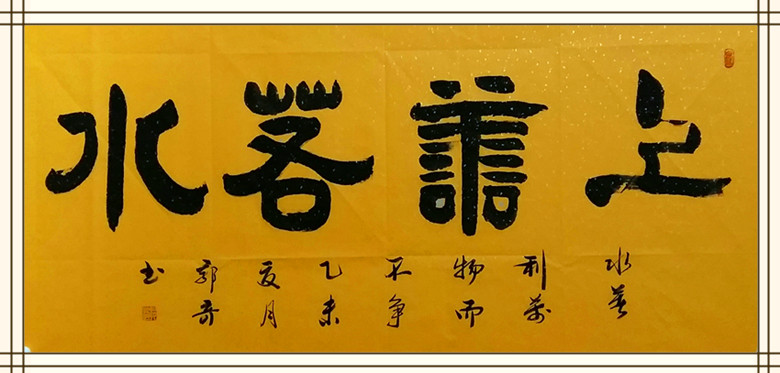 上善若水
水善
利萬
物而
不争
乙未
夏月
郭奇
书